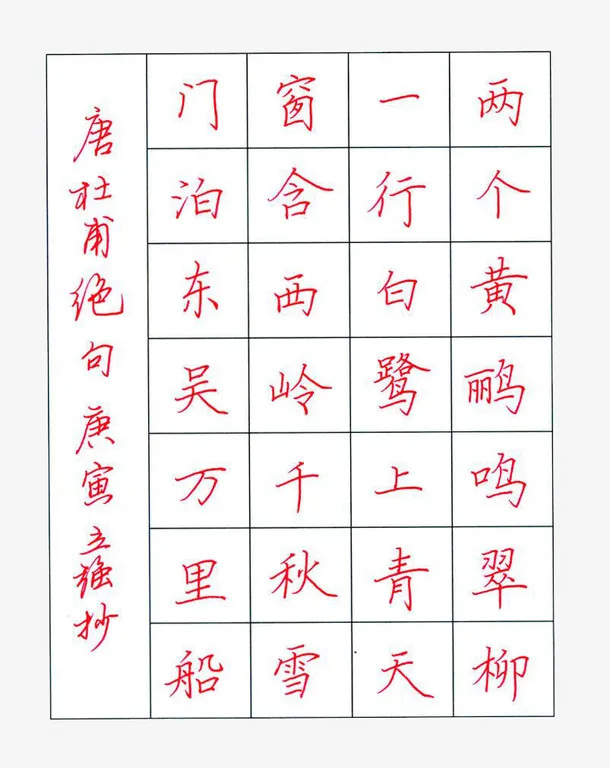 两个黄鹂鸣翠柳
一行白鹭上青天
窗含西岭千秋雪
门泊东吴万里船
唐杜甫绝句 庚寅 立强抄